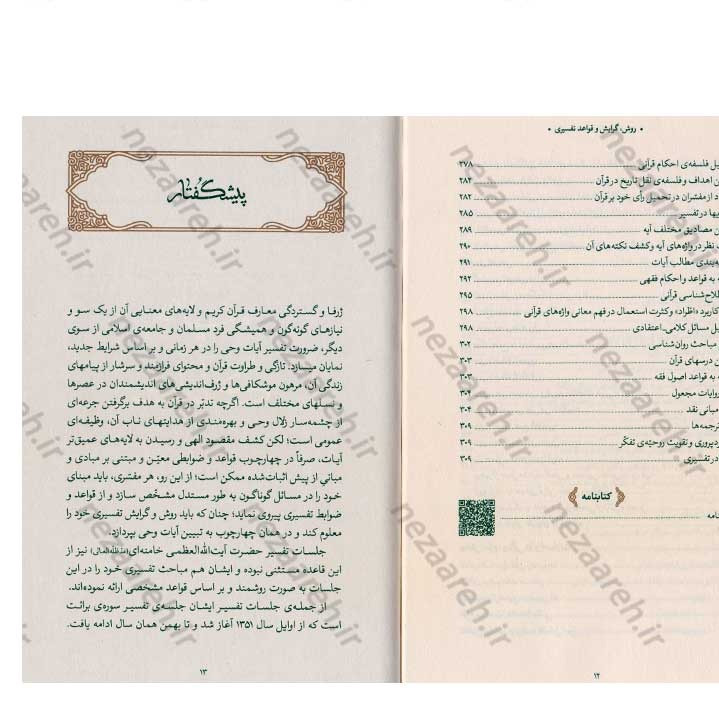 • روش، گرایش و قواعد تفسیری •
فلسفه‌ی احکام قرآنی ۲۷۸
اهداف و فلسفه‌ی نقل تاریخ در قرآن ۲۸۲
از مفسّران در تحمیل رأی خود بر قرآن ۲۸۲
در تفسیر ۲۸۵
مصادیق مختلف آیه ۲۸۹
نظر در واژه‌های آیه و کشف نکته‌های آن ۲۹۰
مطالب آیات ۲۹۱
به قواعد و احکام فقهی ۲۹۲
قرآنی ۲۹۵
کاربرد «اظراد» و کثرت استعمال در فهم معانی واژه‌های قرآنی ۲۹۸
مسائل کلامی-اعتقادی ۲۹۸
مباحث روان‌شناسی ۳۰۲
درسهای قرآن ۳۰۳
به قواعد اصول فقه ۳۰۳
روایات مجعول ۳۰۴
مبانی نقد ۳۰۴
ترجمه‌ها ۳۰۹
و تقویت روحیّه‌ی تفکّر ۳۰۹
در تفسیری ۳۰۹
کتابنامه
۱۲
پیشگفتار
ژرفا و گستردگی معارف قرآن کریم و لایه‌های معنایی آن از یک سو و
نیازهای گونه‌گون و همیشگی فرد مسلمان و جامعه‌ی اسلامی از سوی
دیگر، ضرورت تفسیر آیات وحی را در هر زمانی و بر اساس شرایط جدید،
نمایان میسازد. تازگی و طراوت قرآن و محتوای فرازمند و سرشار از پیامهای
زندگی آن، مرهون موشکافی‌ها و ژرف‌اندیشی‌های اندیشمندان در عصرها
و نسلهای مختلف است. اگرچه تدبّر در قرآن به هدف برگرفتن جرعه‌ای
از چشمه‌سار زلال وحی و بهره‌مندی از هدایتهای ناب آن، وظیفه‌ای
عمومی است؛ لکن کشف مقصود الهی و رسیدن به لایه‌های عمیق‌تر
آیات، صرفاً در چهارچوب قواعد و ضوابطی معیّن و مبتنی بر مبادی و
مبانیِ از پیش اثبات‌شده ممکن است؛ از این رو، هر مفسّری، باید مبنای
خود را در مسائل گوناگون به طور مستدل مشخّص سازد و از قواعد و
ضوابط تفسیری پیروی نماید؛ چنان که باید روش و گرایش تفسیری خود را
معلوم کند و در همان چهارچوب به تبیین آیات وحی بپردازد.
جلسات تفسیر حضرت آیت‌الله‌العظمی خامنه‌ای (مدّظلّه‌العالی) نیز از
این قاعده مستثنی نبوده و ایشان هم مباحث تفسیری خود را در این
جلسات به صورت روشمند و بر اساس قواعد مشخصی ارائه نموده‌اند.
از جمله‌ی جلسات تفسیر ایشان جلسه‌ی تفسیر سوره‌ی برائت
است که از اوایل سال ۱۳۵۱ آغاز شد و تا بهمن همان سال ادامه یافت.
۱۳
nezaareh.ir